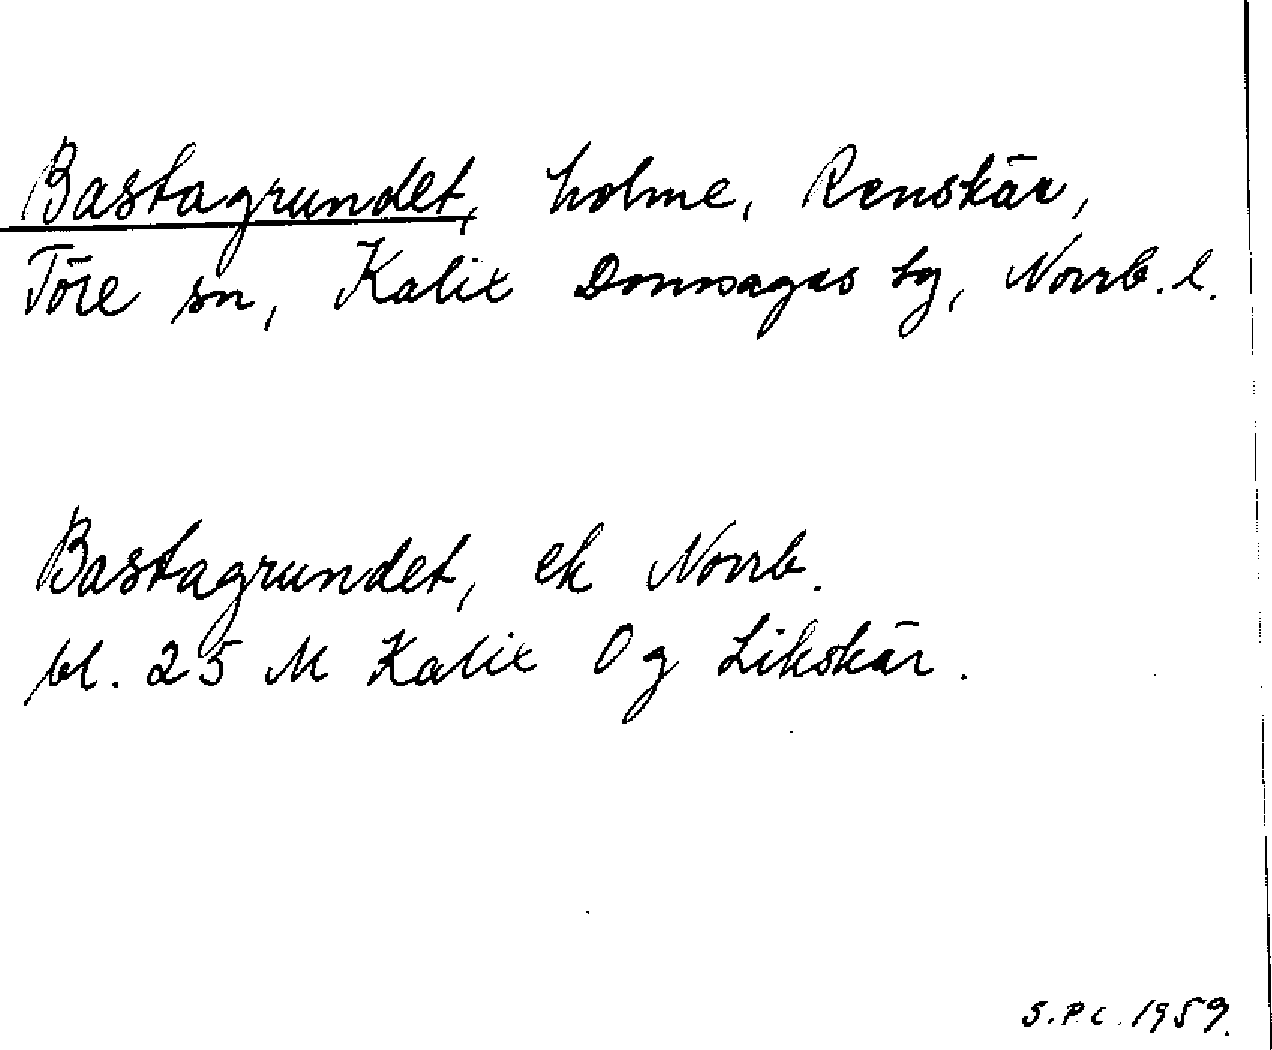 Bastagrundet, holme, Renskär,
Töre sn, Kalix Domsagas tg, Norrb. l.
Bastagrundet, ek Norrb.
bl. 25 M Kalix Og Likskär.
S.P.C. 1959.